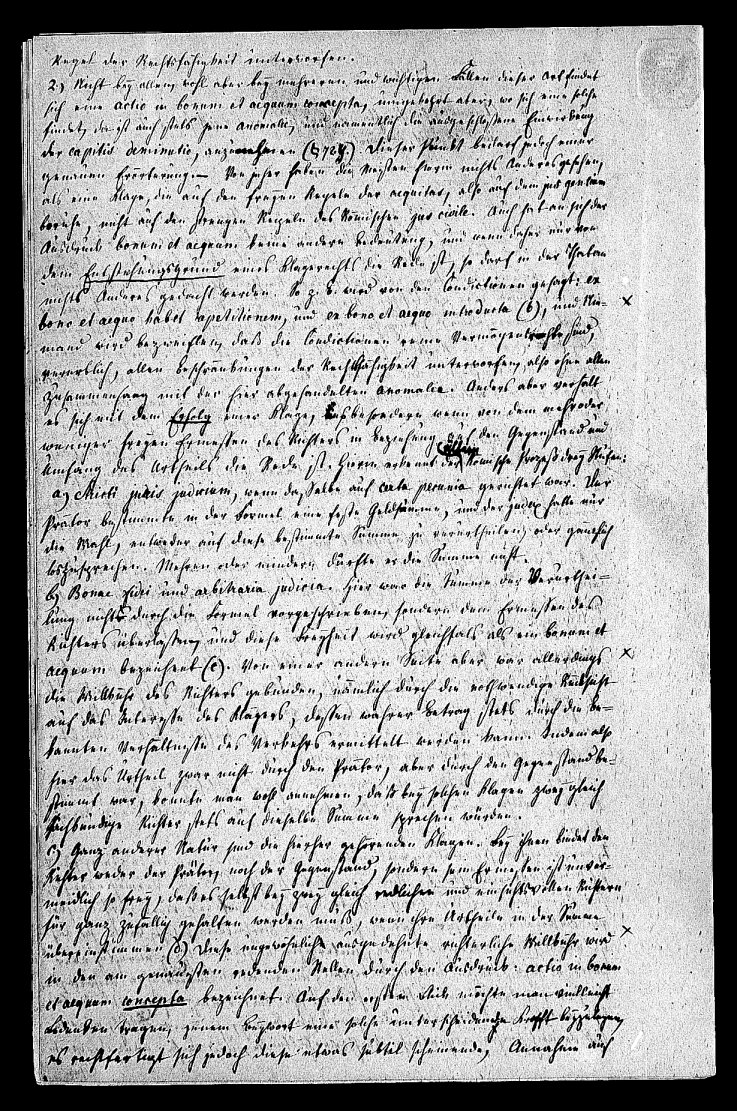 Regel der Rechtsfähigkeit unterworfen.
2.) Nicht bey allen, wohl aber bey mehreren und wichtigen Fällen dieser Art findet
sich eine actio in bonum et aequum concepta, umgekehrt aber, wo sich eine solche
findet, da ist auch stets jene Anomalie, und namentlich die ausgeschlossene Einwirkung
der capitis deminutio, anzunehmen (§ 72.). Dieser Punkt bedarf jedoch einer
genauen Erörterung. – Von jeher haben die Meisten hierin nichts Anderes gesehen,
als eine Klage, die auf den freyen Regeln der aequitas, also auf dem jus gentium
beruhe, nicht auf den strengen Regeln des Römischen jus civile. Auch hat an sich der
Ausdruck bonum et aequum keine andere Bedeutung, und wenn daher nur von
dem Entstehungsgrund eines Klagerechts die Rede ist, so darf in der That an
nichts Anderes gedacht werden. So z. B. wird von den Condictionen gesagt: ex
bono et aequo habet repetitionem, und ex bono et aequo introducta (b), und Nie-
mand wird bezweifeln, daß die Condictionen reine Vermögensrechte sind,
vererblich, allen Beschränkungen der Rechtsfähigkeit unterworfen, also ohne allen
Zusammenhang mit der hier abgehandelten Anomalie. Anders aber verhält
es sich mit dem Erfolg einer Klage, insbesondere wenn von dem mehr oder
weniger freyen Ermessen des Richters in Beziehung auf den Gegenstand und
Umfang des Urtheils die Rede ist. Hierin erkennt der Römische Prozeß drey Stufen:
a) Stricti juris judicium, wenn dasselbe auf certa pecunia gerichtet war. Der
Prätor bestimmte in der Formel eine feste Geldsumme, und der judex hatte nur
die Wahl, entweder auf diese bestimmte Summe zu verurtheilen, oder gänzlich
loszusprechen. Mehren oder mindern durfte er die Summe nicht.
b) Bonae fidei und arbitraria judicia. Hier war die Summe der Verurthei-
lung nicht durch die Formel vorgeschrieben, sondern dem Ermessen des
Richters überlassen, und diese Freyheit wird gleichfalls als ein bonum et
aequum bezeichnet (c). Von einer andern Seite aber war allerdings
die Willkühr des Richters gebunden, nämlich durch die nothwendige Rücksicht
auf das Interesse des Klägers, dessen wahrer Betrag stets durch die be-
kannten Verhältnisse des Verkehrs ermittelt werden kann. Indem also
hier das Urtheil zwar nicht durch den Prätor, aber durch den Gegenstand be-
stimmt war, konnte man wohl annehmen, daß bey solchen Klagen zwey gleich
sachkundige Richter stets auf dieselbe Summe sprechen würden.
c) Ganz anderer Natur sind die hierher gehörenden Klagen. Bey ihnen bindet den
Richter weder der Prätor, noch der Gegenstand, sondern sein Ermessen ist unver-
meidlich so frey, daß es selbst bey zwey gleich redlichen und einsichtsvollen Richtern
für ganz zufällig gehalten werden muß, wenn ihre Urtheile in der Summe
übereinstimmen. Diese ungewöhnliche ausgedehnte richterliche Willkühr wird
in den am genauesten redenden Stellen durch den Ausdruck: actio in bonum
et aequum concepta bezeichnet. Auf den ersten Blick möchte man vielleicht
Bedenken tragen, jenem Beywort eine solche unterscheidende Kraft beyzulegen,
es rechtfertigt sich jedoch diese etwas subtil scheinende, Annahme auf